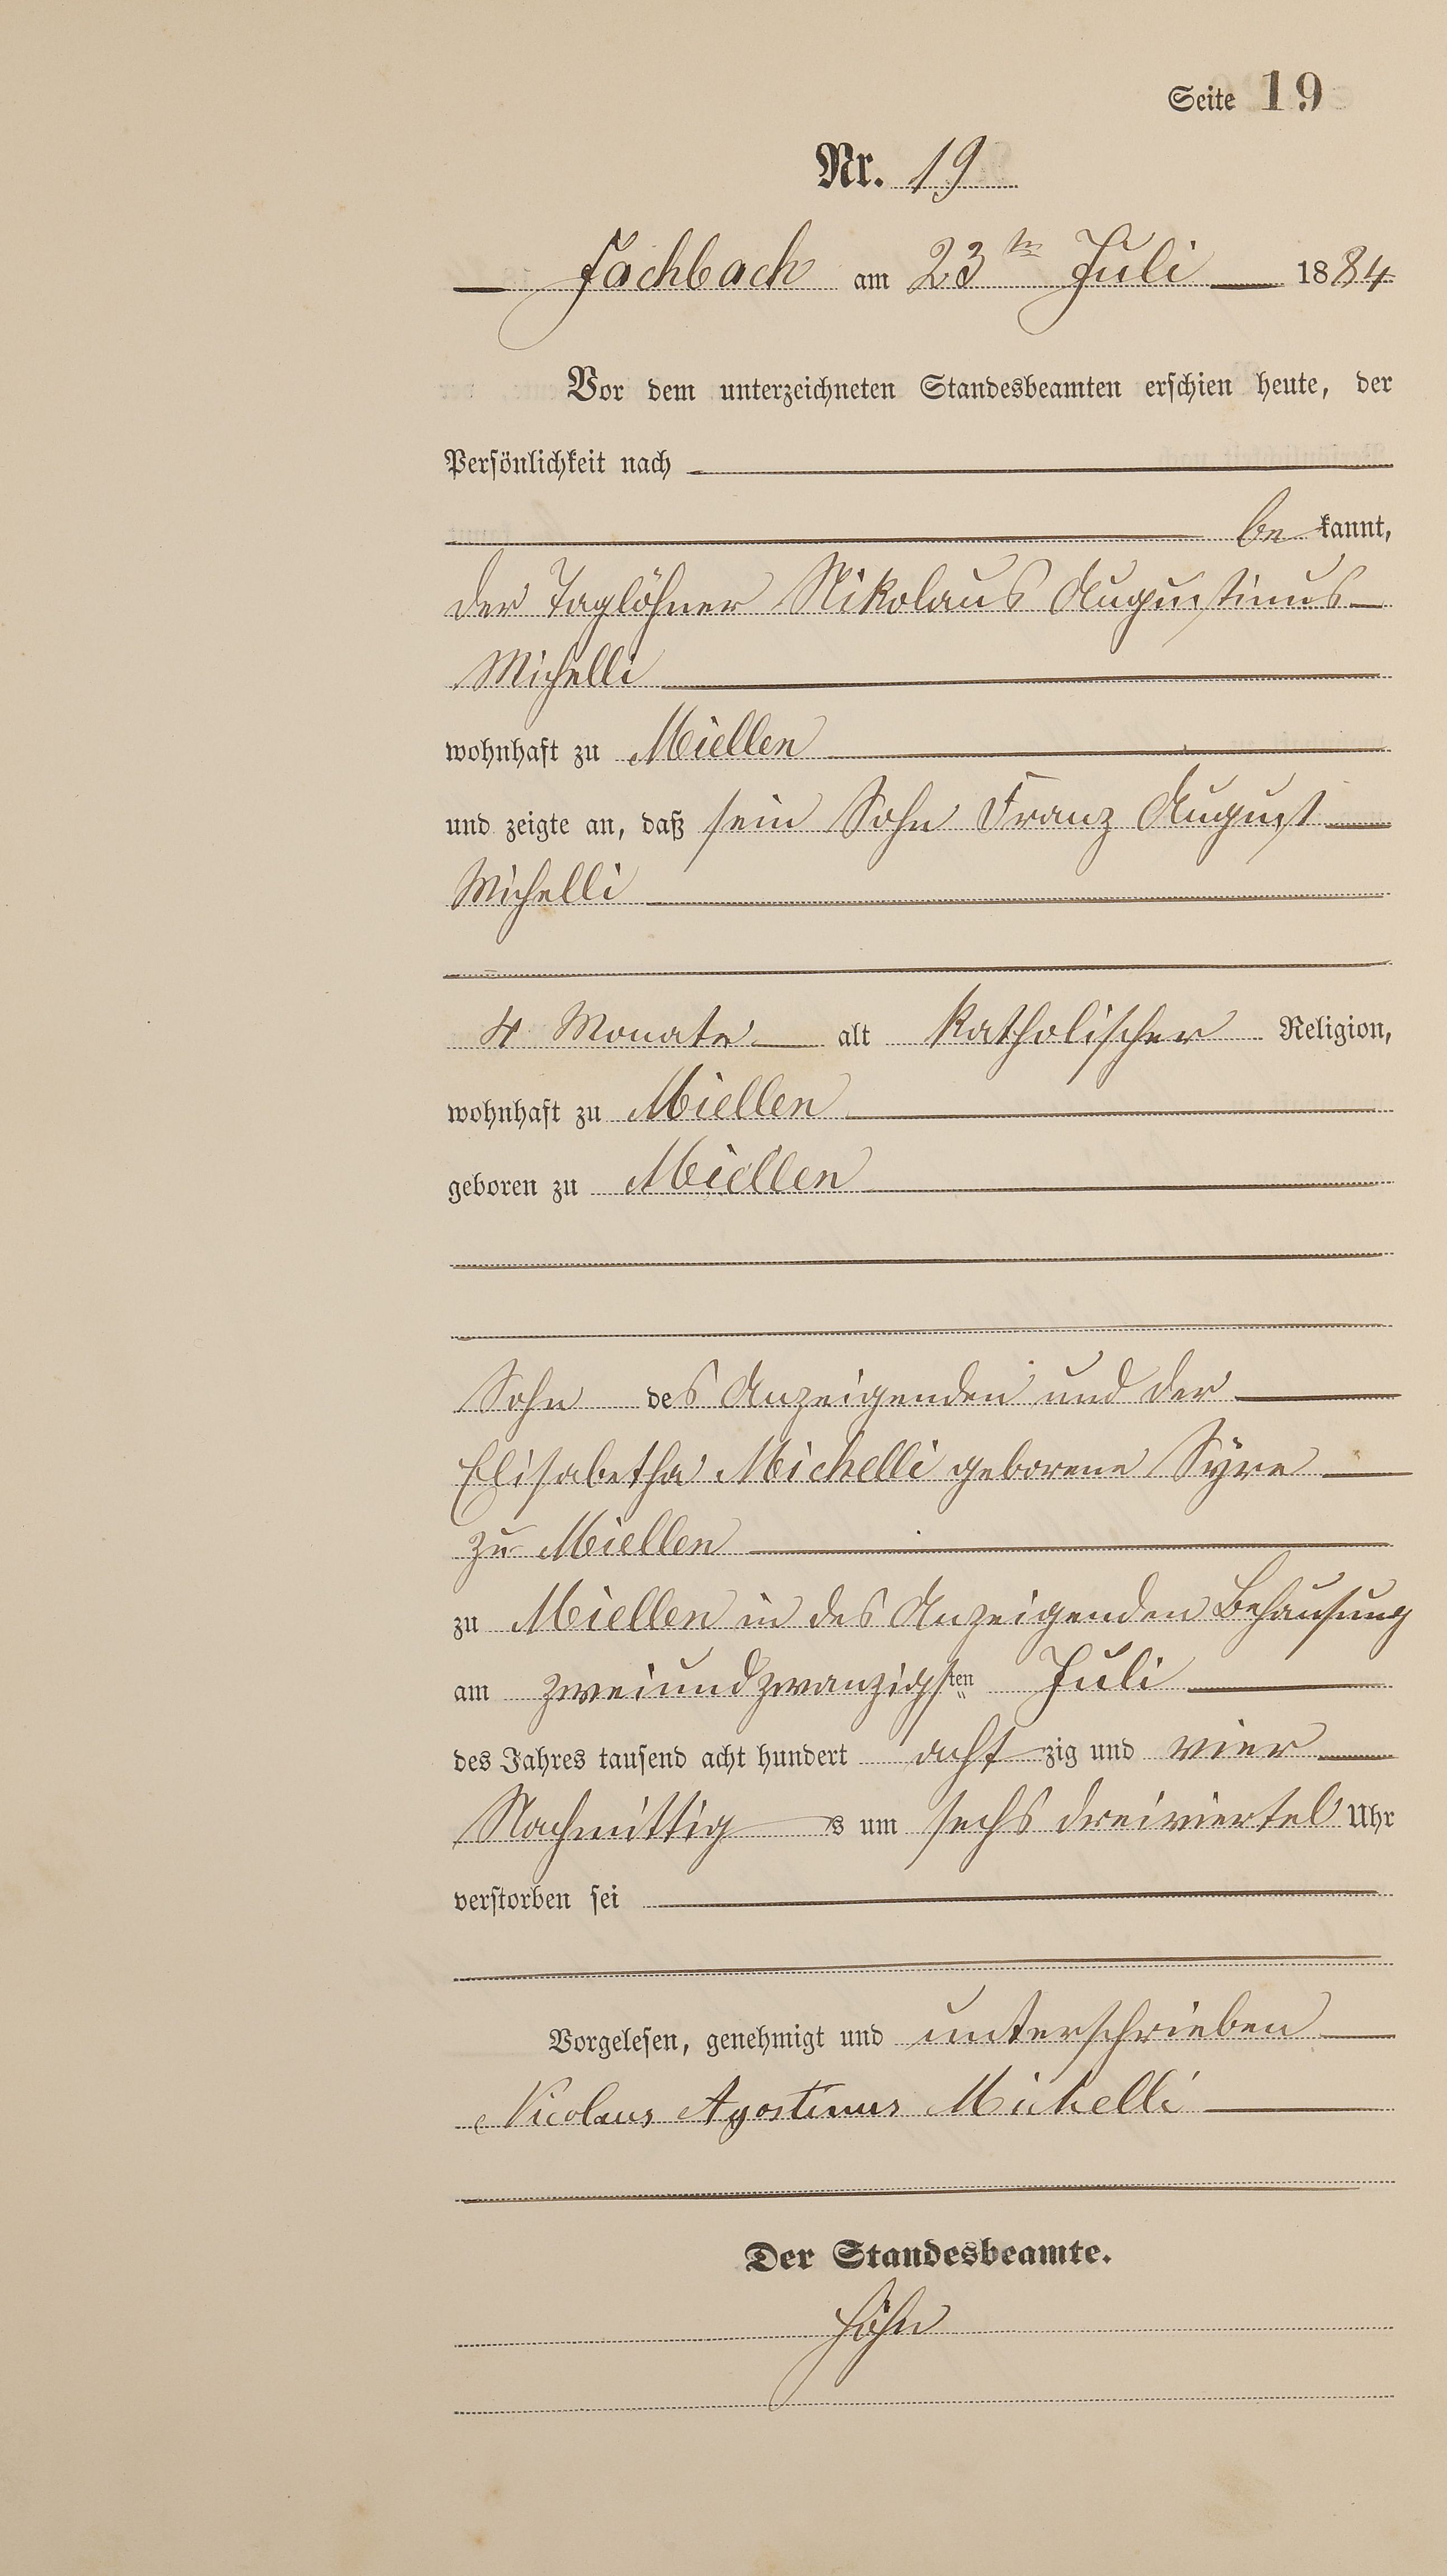 Seite 19
Nr. 19
Fachbach am 23ten Juli 1884
Vor dem unterzeichneten Standesbeamten erschien heute, der
Persönlichkeit nach
be kannt,
der Taglöhner Nikolaus Augustinus
Michelli
wohnhaft zu Miellen
und zeigte an, daß sein Sohn Franz August
Michelli
4 Monate alt katholischer Religion,
wohnhaft zu Miellen
geboren zu Miellen
Sohn des Anzeigenden und der
Elisabetha Michelli geborene Syre
zu Miellen
zu Miellen in des Anzeigenden Behausung
am zweiundzwanzigsten Juli
des Jahres tausend acht hundert acht zig und vier
Nachmittig s um sechs dreiviertel Uhr
verstorben sei
Vorgelesen, genehmigt und unterschrieben
Nicolaus Agostinus Michelli
Der Standesbeamte.
Höhn